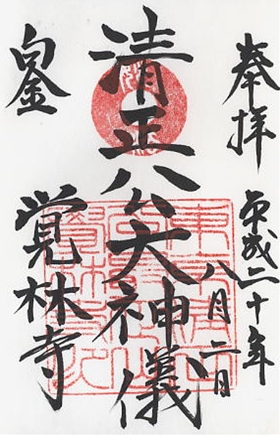 奉拝
平成二十年
八月二日
清正公大神儀
白金
覚林寺